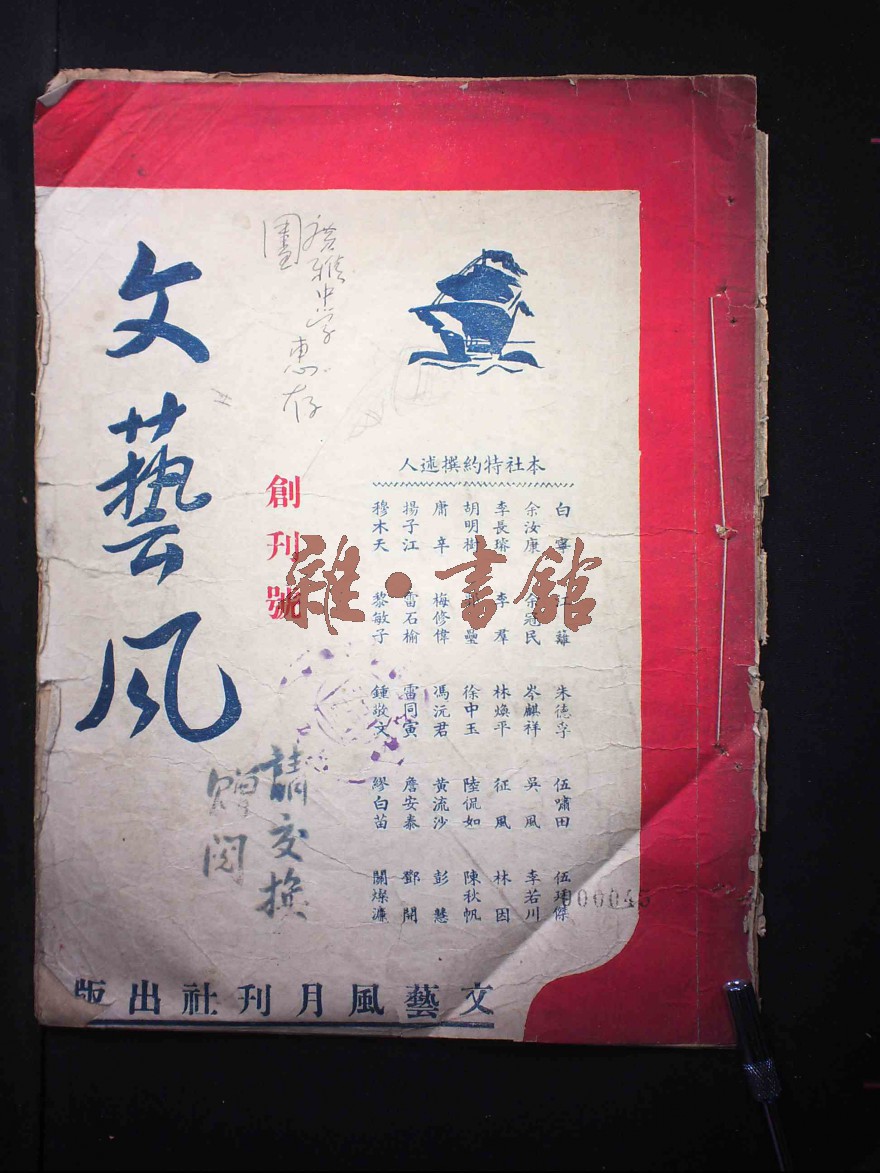 文藝風
創刊號
中学惠存
圖
請交換
贈閱
本社特約撰述人
白寧 江蘺 朱德孚 伍嘯田 伍瑞傑
余汝康 余冠民 岑麒祥 吳風 李若川
李長容 李羣 林煥平 征風 林因
胡明樹 壘 徐中玉 陸侃如 陳秋帆
庸辛 梅修偉 馮沅君 黃流沙 彭慧
揚子江 雷石榆 雷同寅 詹安泰 鄧開
穆木天 黎敏子 鍾敬文 繆白苗 關燦濂
文藝風月刊社出版
000045
雜·書館